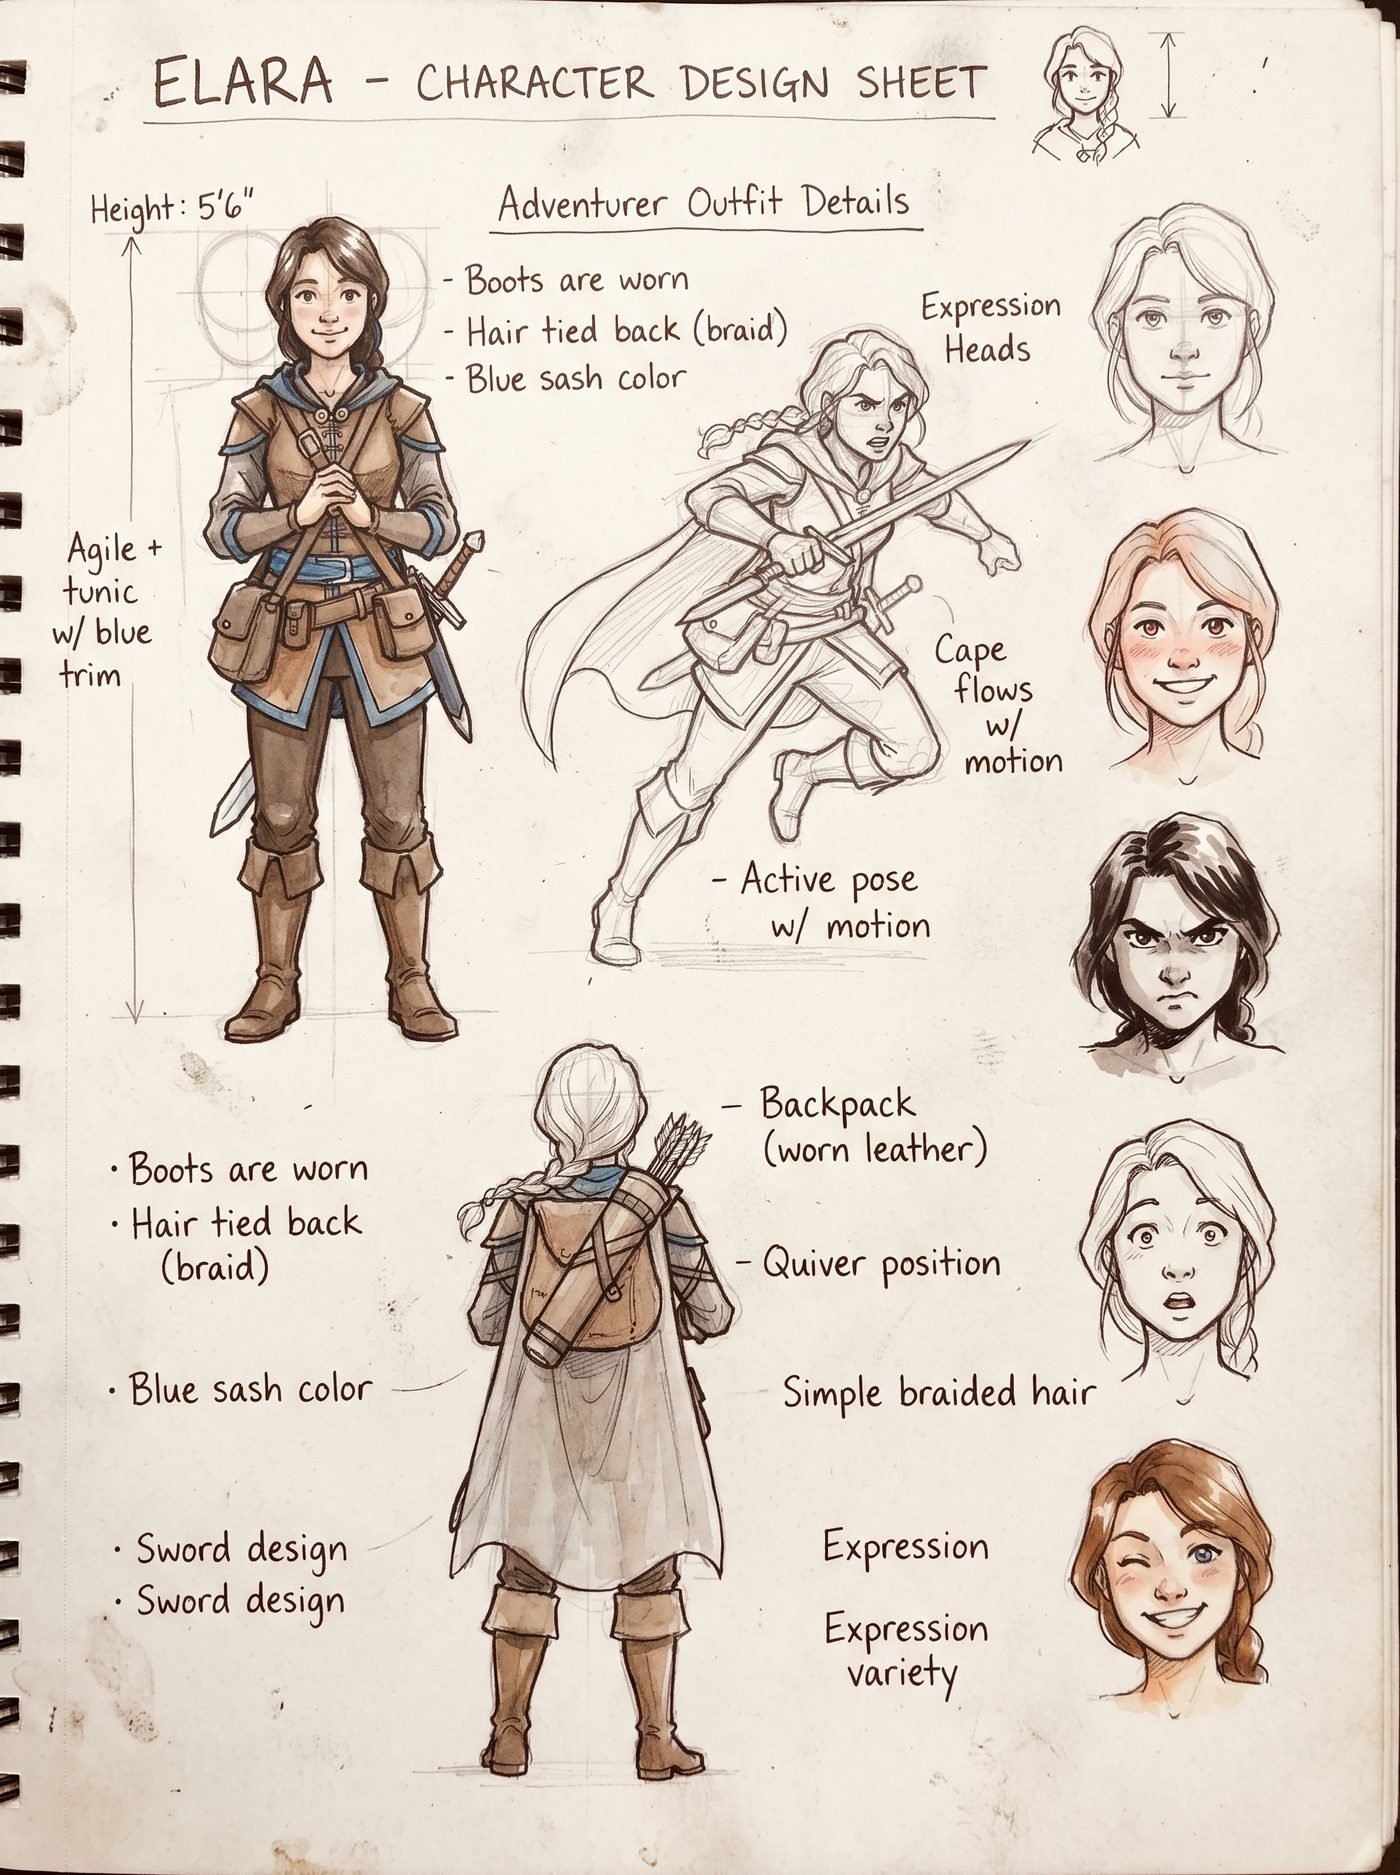 ELARA - CHARACTER DESIGN SHEET
Height: 5'6"
Adventurer Outfit Details
- Boots are worn
- Hair tied back (braid)
- Blue sash color
Expression
Heads
Agile +
tunic
w/ blue
trim
Cape
flows
w/
motion
- Active pose
w/ motion
- Backpack
(worn leather)
• Boots are worn
• Hair tied back
(braid)
- Quiver position
• Blue sash color
Simple braided hair
• Sword design
• Sword design
Expression
Expression
variety